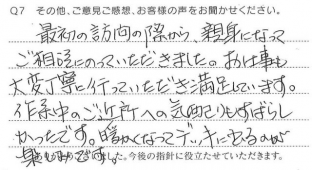 Q7 その他、ご意見ご感想、お客様の声をお聞かせください。
最初の訪問の際から、親身になって
ご相談にのっていただきました。お仕事も
大変丁寧に行っていただき満足しています。
作業中のご近所への気配りもすばらし
かったです。暖かくなってデッキに出るのが
楽しみです。
ました。今後の指針に役立たせていただきます。